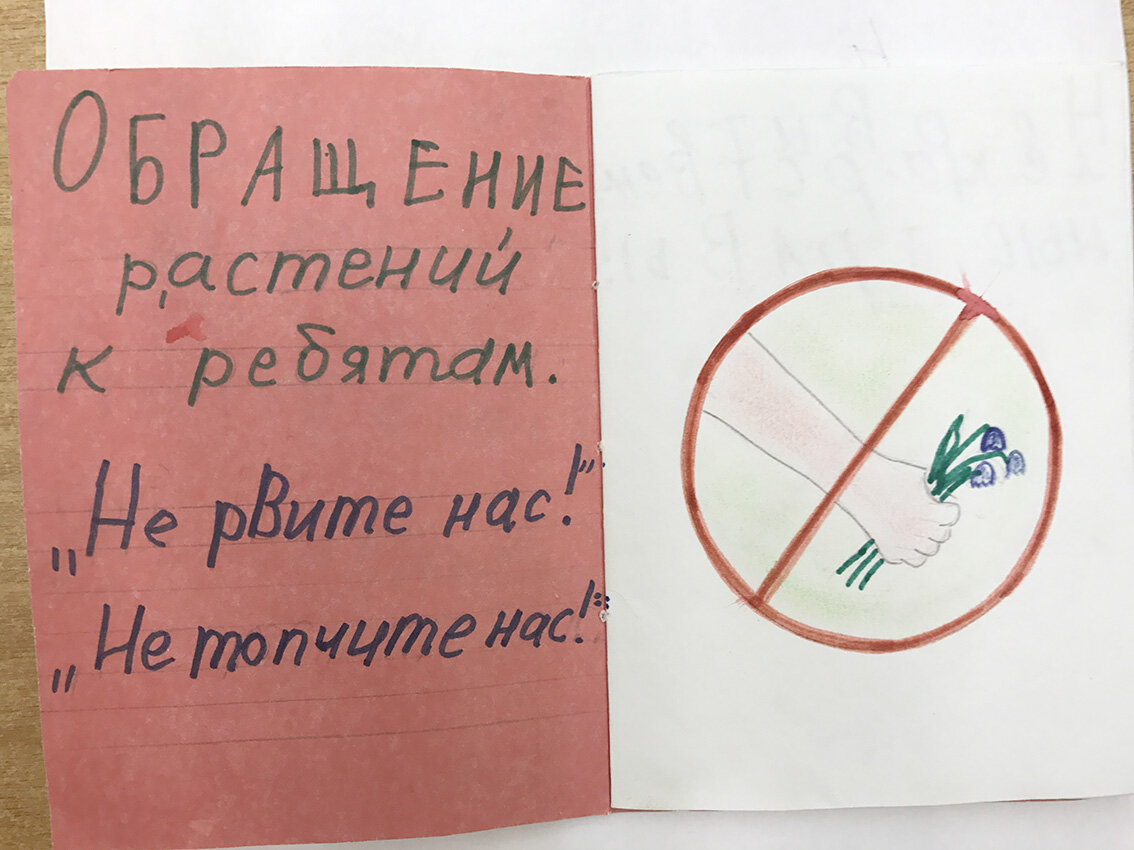 ОБРАЩЕНИЕ
растений
к ребятам.
„Не рвите нас!"
„Не топчите нас!"